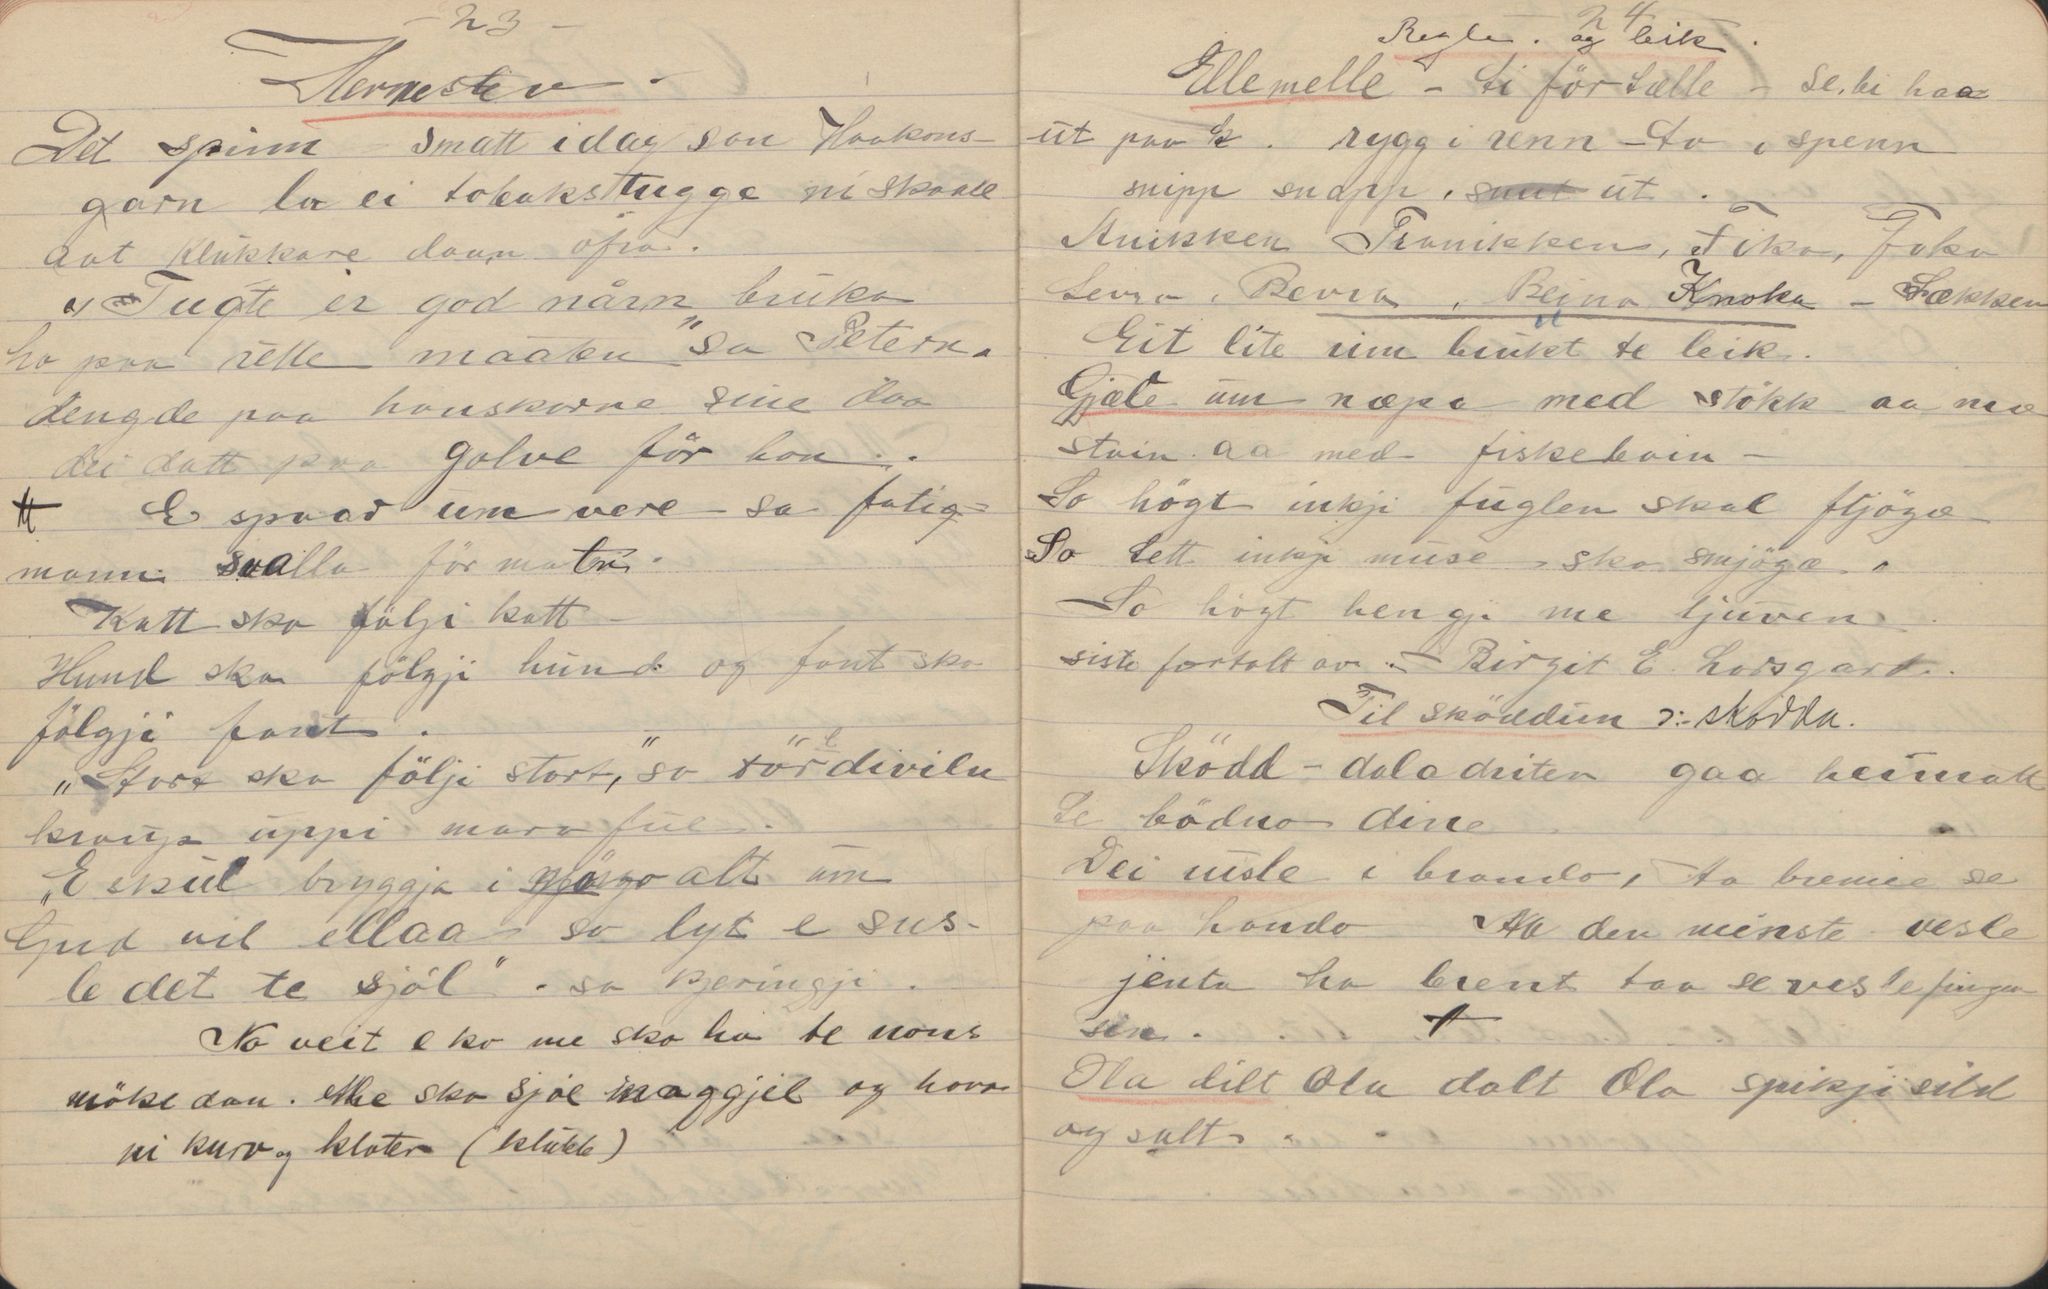 - 23 -
Hermestev.
Det spinn smatt idag sa Haakons-
garn la ei tobakstugge ni skaale
aat klukkare daan öfra.
„Tugte er god nårn bruka
ho paa rette maaten" sa Peter
dengde paa hanskarne sine daa
dei datt paa golve för hon.
E spaar um vere - sa fatig-
mann svalla för maten.
Katt ska följi katt -
Hund ska fölgji hund og fant ska
fölgji fant.
„Stort ska följi stort," sa tördiviln
kraup uppi mara fue.
„E skul bryggja i alt um
Gud vil ellaa so lyt e sus-
le det te sjöl". sa kjeringji.
No veit e ko me ska ha te nons
möke dan. Me ska sjoe inaggjel og hava
ni kurv og klater (klukk)
24
Regle. og leik.
Ellemelle - ti förtælle - se, bi haa
ut paa . rygg i renn - to i spenn
snipp snapp, ut.
Anikken Tranikken, Fika, Faka
Levra, Bevra, Beina Knoka - Lækken
Eit lite rim brukt te leik.
Gjæte um næpa med stökk aa mæ
stein aa med fiskebein -
So högt inkji fuglen skal fljöga
So tett inkji muse ska smjöga.
So högt hengji me tjuven
siste fortalt av. - Birgit E. Lorsgard.
Til sköddun ɔ: skodda.
Sködd - daladriten gaa heimatt
te bödno dine
Dei risle i brando, to brenne se
paa hando Aa den minste vesle
jenta ha brent taa se veslefingen
sin.
Ola dilt Ola dalt Ola spikji sild
og salt.